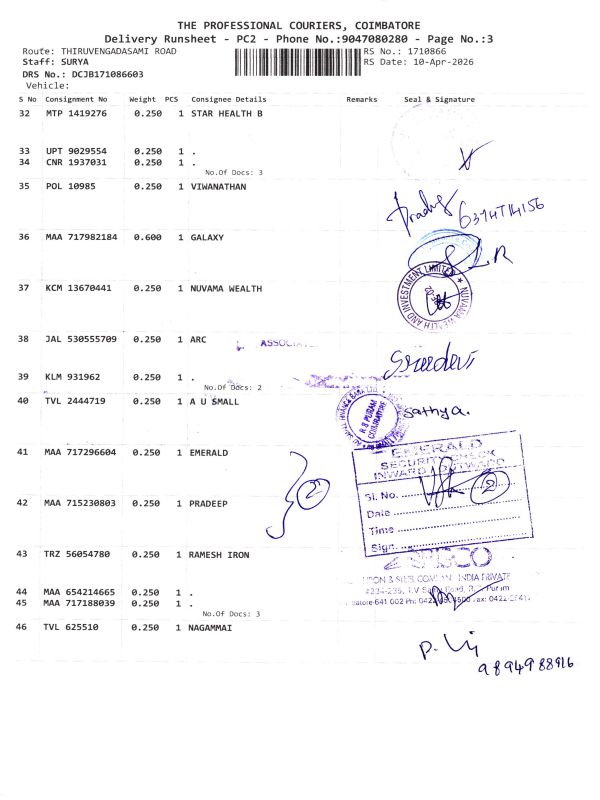 THE PROFESSIONAL COURIERS, COIMBATORE
Delivery Runsheet - PC2 - Phone No.:9047080280 - Page No.:3
Route: THIRUVENGADASAMI ROAD RS No.: 1710866
Staff: SURYA RS Date: 10-Apr-2026
DRS No.: DCJB171086603
Vehicle:
S No Consignment No Weight PCS Consignee Details Remarks Seal & Signature
32 MTP 1419276 0.250 1 STAR HEALTH B
33 UPT 9029554 0.250 1 .
34 CNR 1937031 0.250 1 .
No.Of Docs: 3
35 POL 10985 0.250 1 VIWANATHAN
6374714156
36 MAA 717982184 0.600 1 GALAXY
37 KCM 13670441 0.250 1 NUVAMA WEALTH
NUVAMA WEALTH AND INVESTMENT LIMITED
38 JAL 530555709 0.250 1 ARC
Sreedevi
39 KLM 931962 0.250 1 .
No.Of Docs: 2
40 TVL 2444719 0.250 1 A U SMALL
R S PURAM COIMBATORE
Sathya.
41 MAA 717296604 0.250 1 EMERALD
EMERALD
SECURITY CHECK
INWARD
Sl. No. 2
Date
Time
Sign
2
42 MAA 715230803 0.250 1 PRADEEP
43 TRZ 56054780 0.250 1 RAMESH IRON
INDIA PRIVATE
44 MAA 654214665 0.250 1 .
45 MAA 717188039 0.250 1 .
No.Of Docs: 3
46 TVL 625510 0.250 1 NAGAMMAI
9894988916